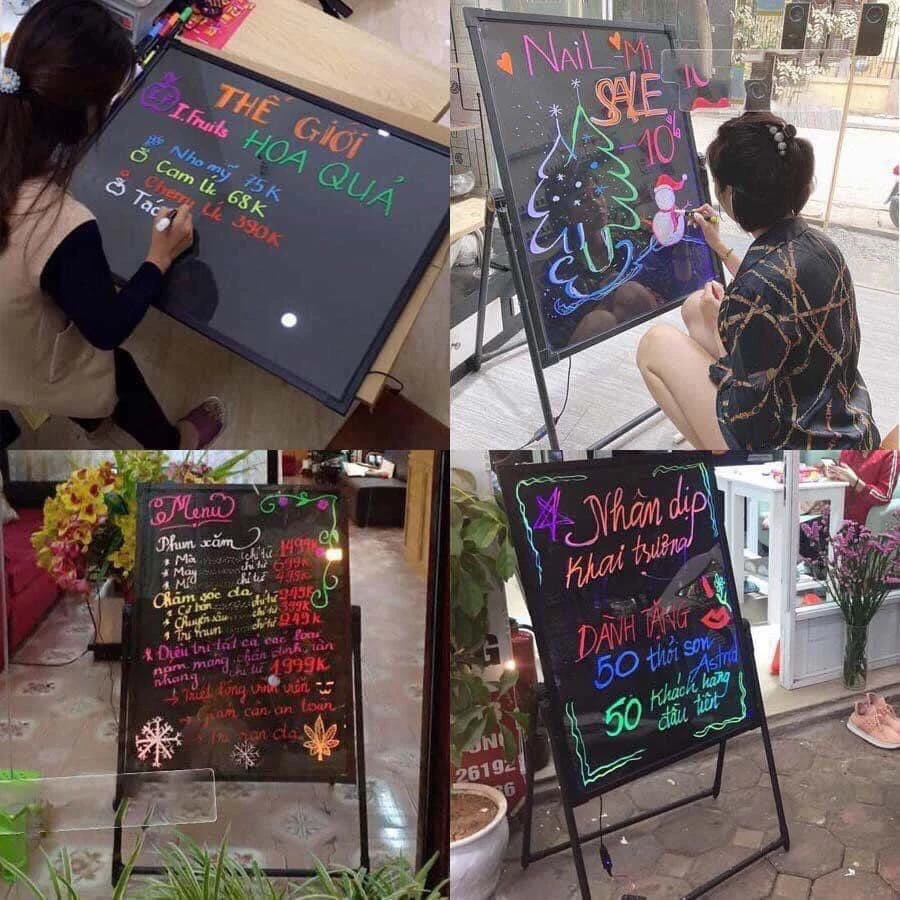 THẾ GIỚI
I.F
I.Fruits
HOA QUẢ
Nho mỹ 75K
Cam lk 68K
Cherry lk 390K
Táo
NAIL-Mi
SALE
-10%
Menu
Phun xăm
* Mà chỉ từ 1499K
* Mày chỉ từ 699K
* Mí chỉ từ 499K
Chăm sóc da
* Cơ bản chỉ từ 249K
* Chuyên sâu chỉ từ 399K
* Trị mụn chỉ từ 249K
Điều trị tất cả các loại
nám mảng, chân đinh, tàn
nhang chỉ từ 1999K
→ Triệt lông vĩnh viễn
→ Giảm cân an toàn
Nhân dịp
Khai trương
DÀNH TẶNG
50 thỏi son
Astrid
50 Khách hàng
đầu tiên
26192